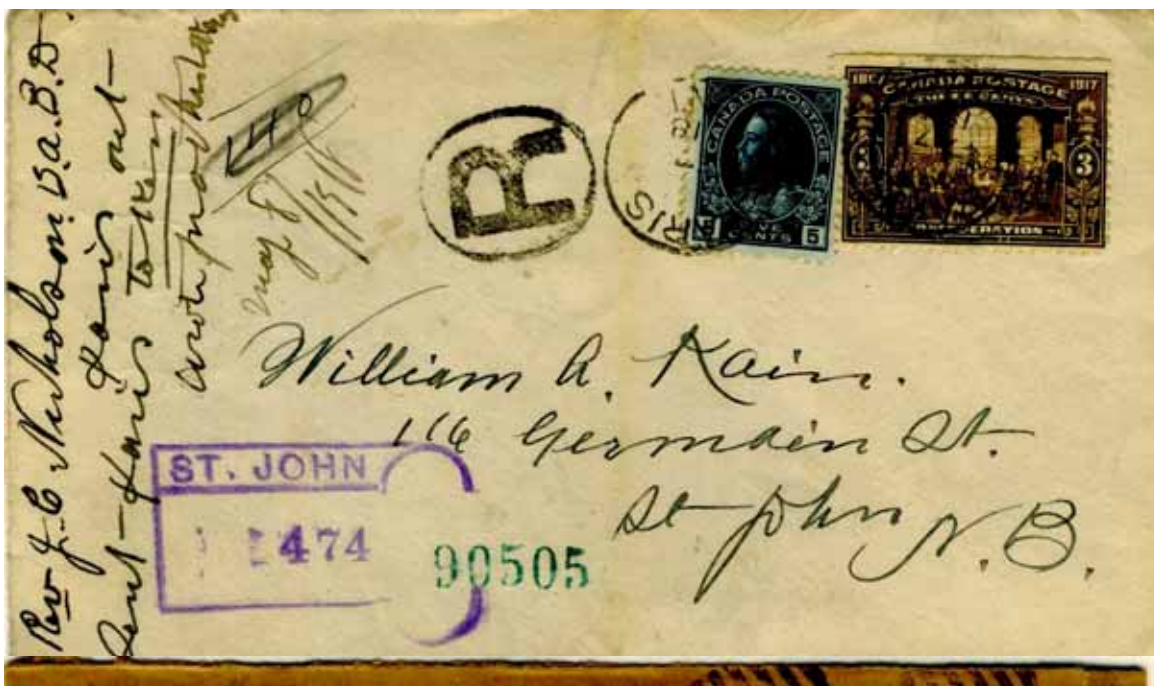 Rev J. C. Nicholson B.a. B.D.
Paris ont
Sent Paris to Ken
May 8
1918
140
R
RIS
CANADA POSTAGE
CENTS 5
1867 CANADA POSTAGE 1917
THREE CENTS
3 3
CONFEDERATION
William A. Kain.
116 Germain St.
St John N.B.
ST. JOHN
474
90505